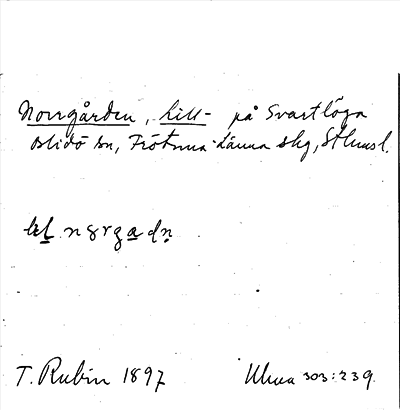 Norrgården, Lill- på Svartlöga
Blidö sn, Frötuna-Länna skg, Sthmsl.
T. Rubin 1897 Uhua 303:239.